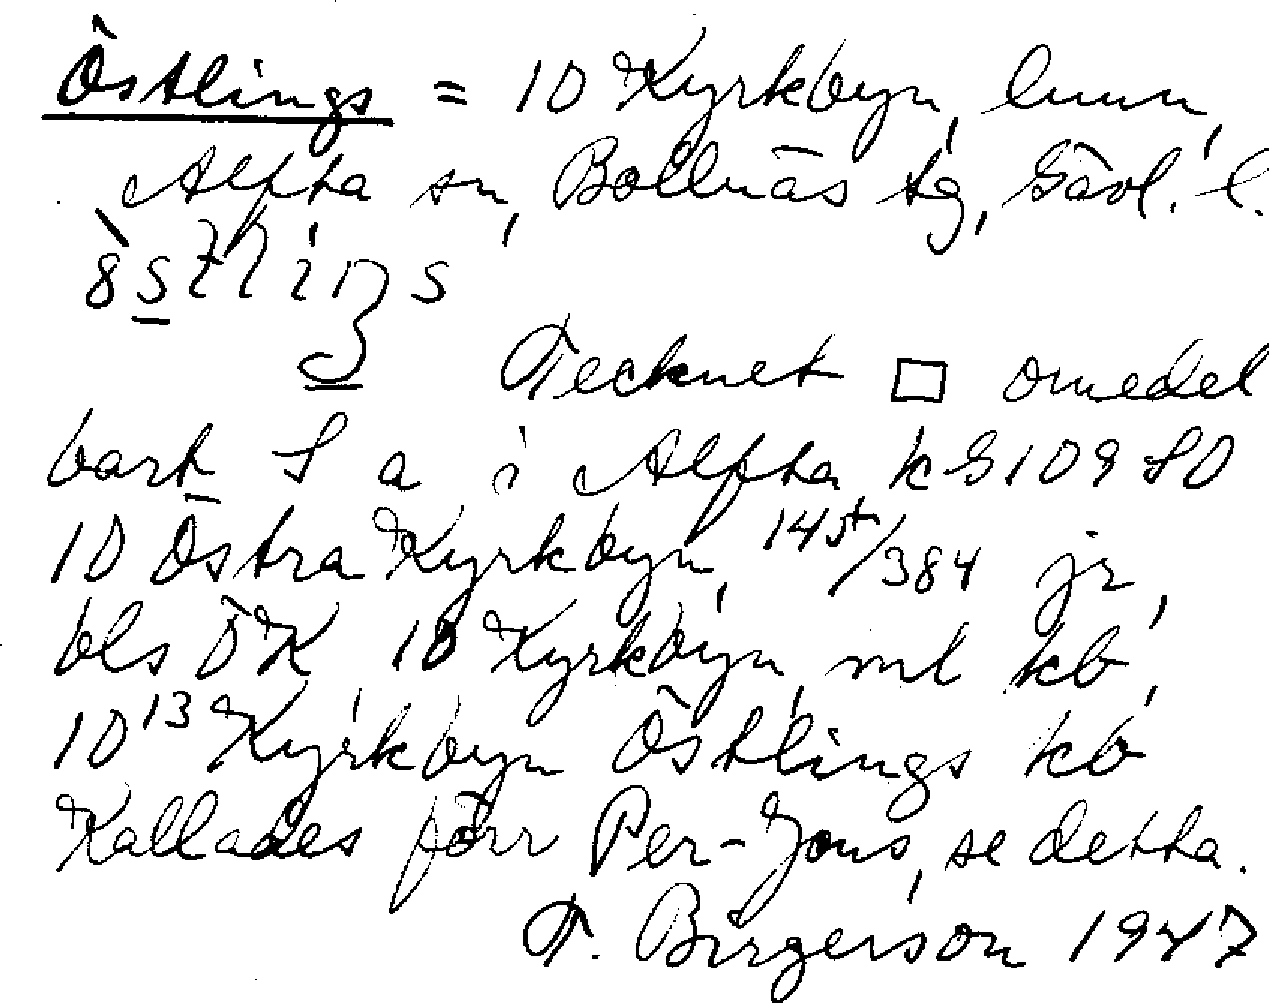 Östlings = 10 Kyrkbyn, lmn,
Alfta sn, Bollnäs tg, Gävl. l.
Tecknet □ omedel
bart S a i Alfta k G 109 SO
10 Östra Kyrkbyn, 14 st/384 jr,
bls ÖK 10 Kyrkbyn, ml kb,
10 13 Kyrkbyn Östlings kb
Kallades förr Per-Jons, se detta.
T. Birgerson 1947